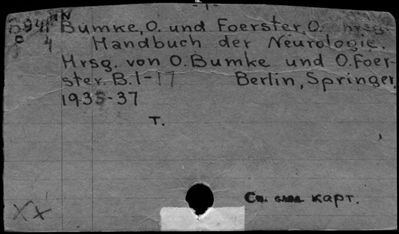 Bumke, O. und Foerster, O. hrsg.
Handbuch der Neurologie.
Hrsg. von O. Bumke und O. Foer-
ster. B. 1-17 Berlin, Springer,
1935-37
т.
См. след карт.
XX